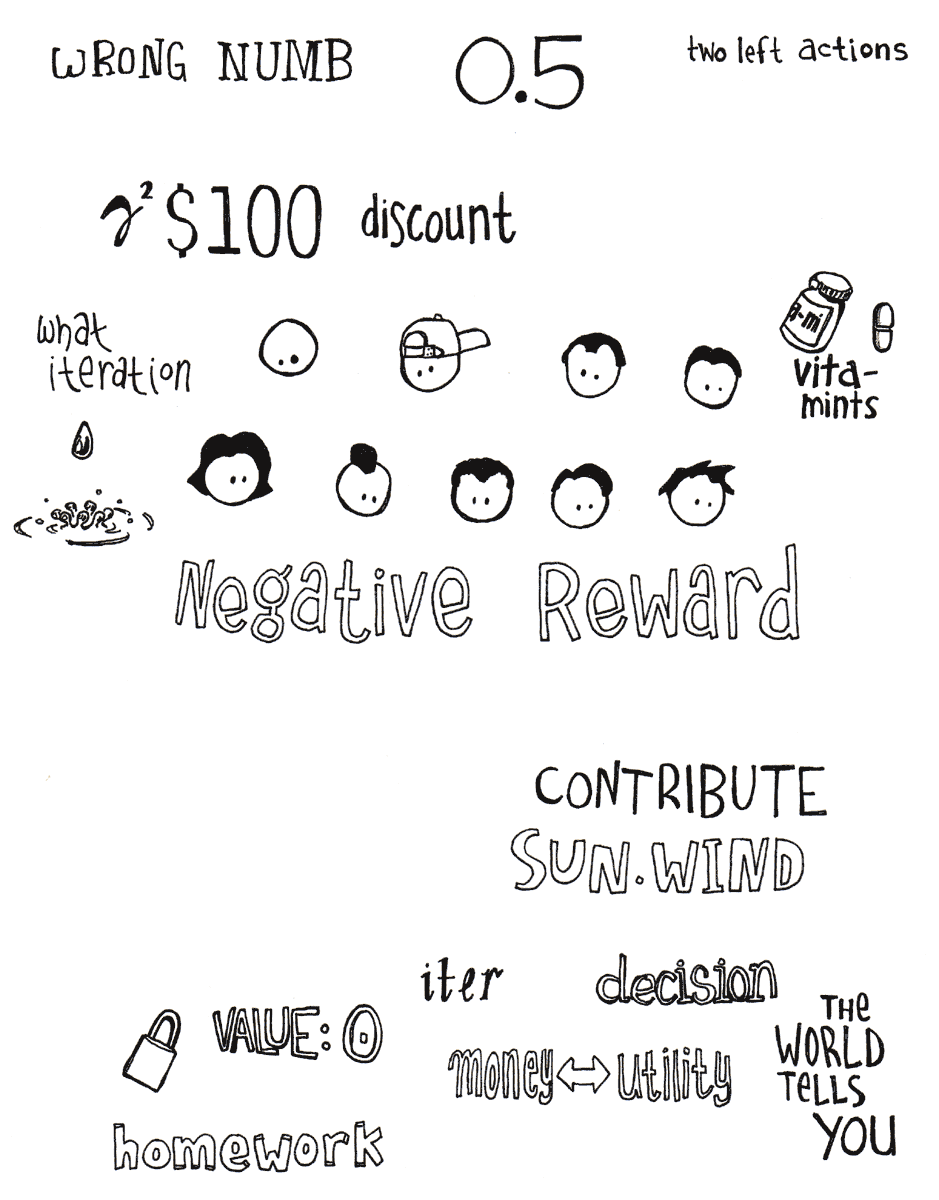 WRONG NUMB
0.5
two left actions
γ² $100 discount
what
iteration
a-mi
vita-
mints
Negative Reward
CONTRIBUTE
SUN.WIND
iter
decision
VALUE: 0
money↔utility
THE
WORLD
TELLS
YOU
homework